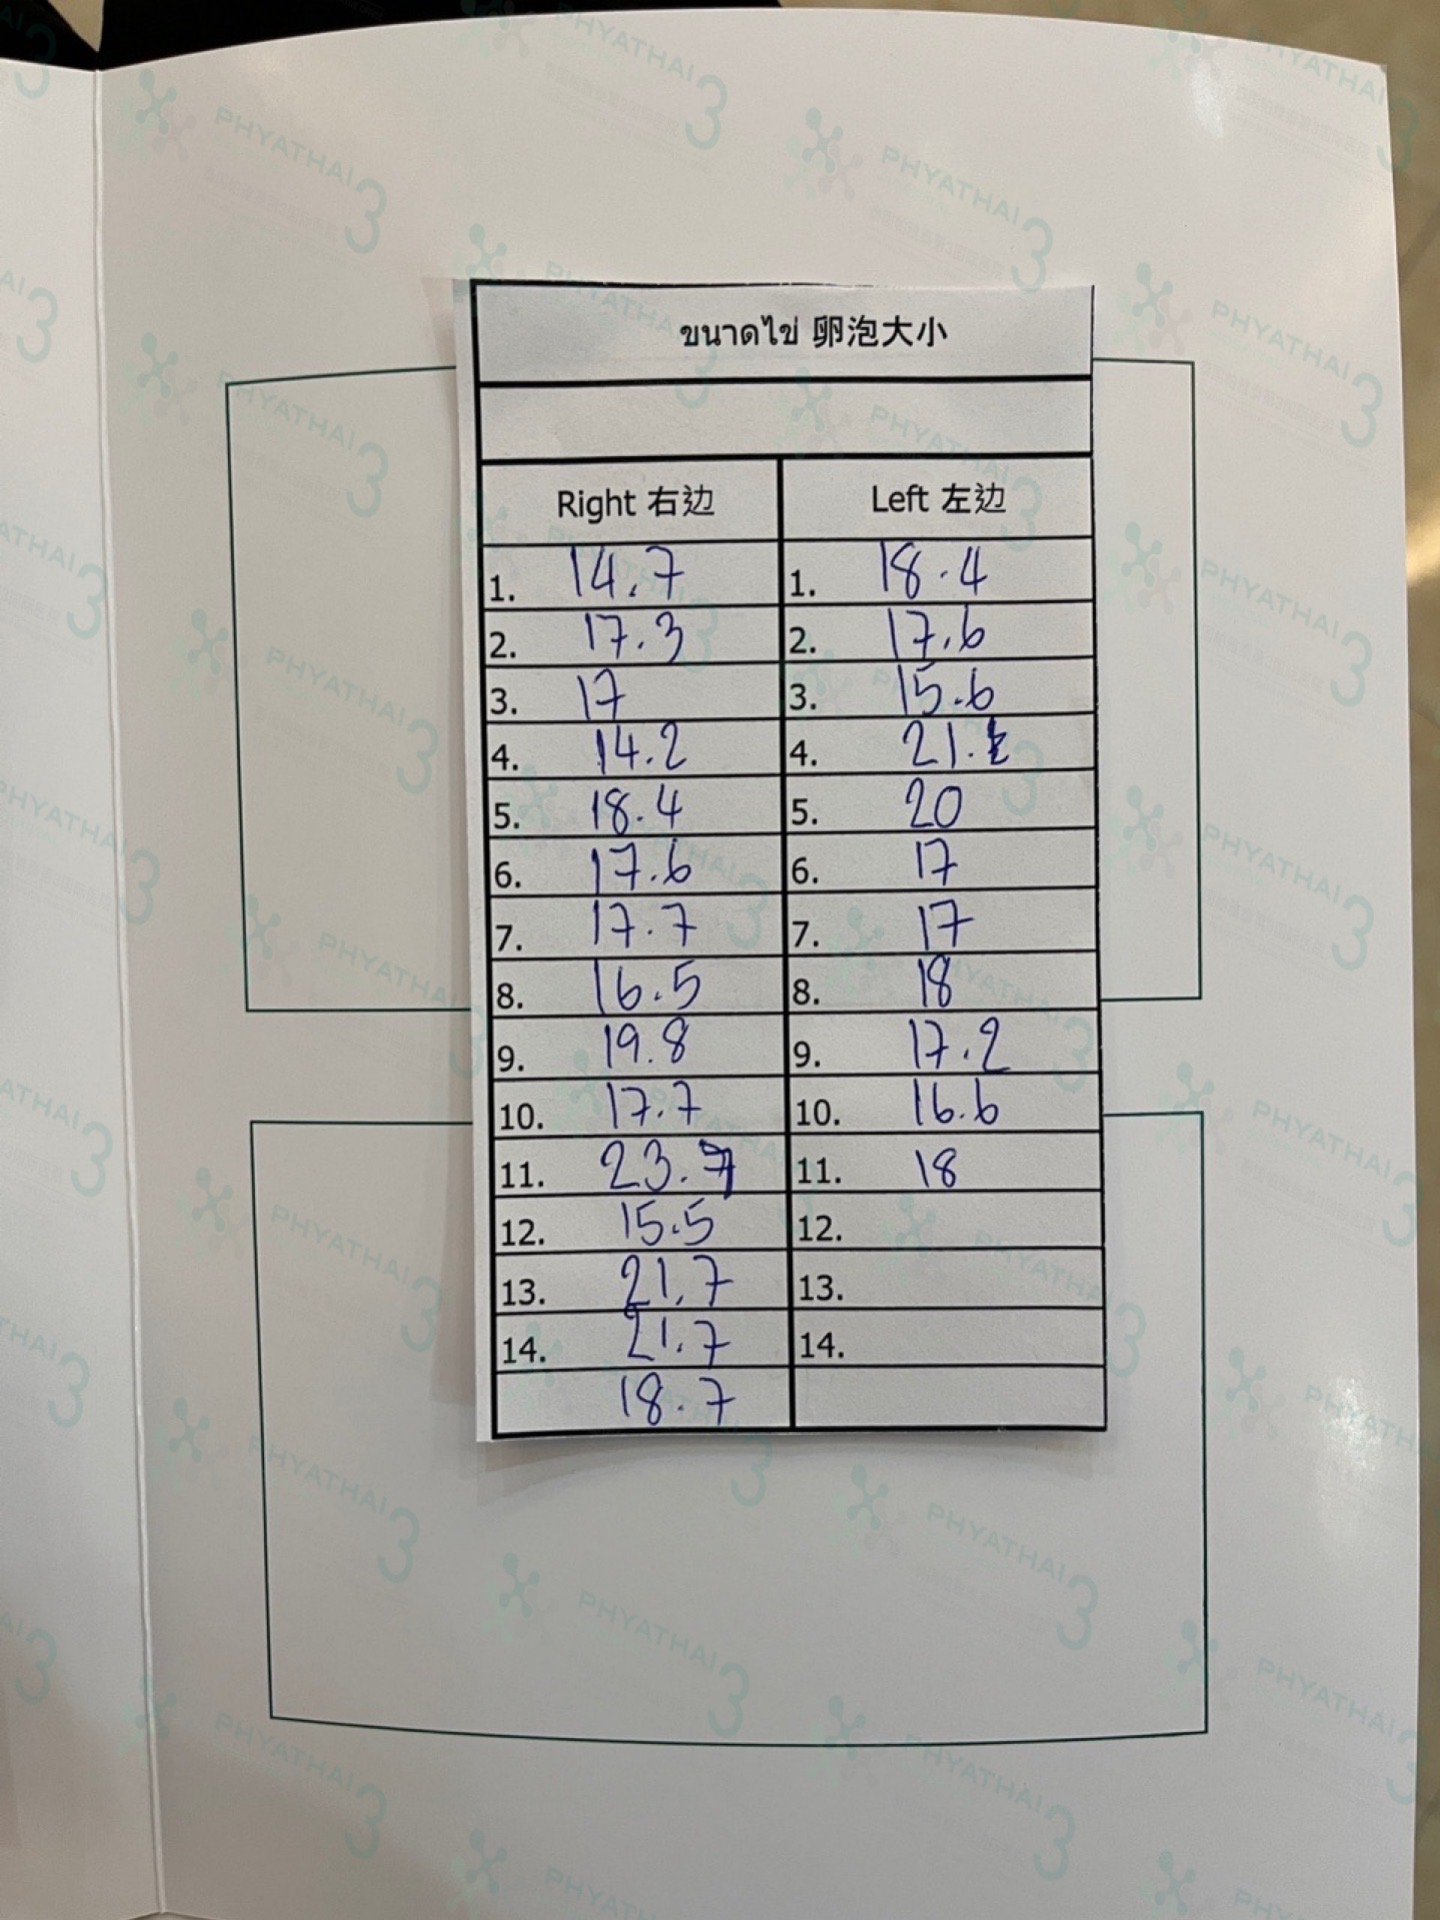 ขนาดไข่ 卵泡大小
Right 右边 Left 左边
1. 14.7 1. 18.4
2. 17.3 2. 17.6
3. 17 3. 15.6
4. 14.2 4. 21.
5. 18.4 5. 20
6. 17.6 6. 17
7. 17.7 7. 17
8. 16.5 8. 18
9. 19.8 9. 17.2
10. 17.7 10. 16.6
11. 23.7 11. 18
12. 15.5 12.
13. 21.7 13.
14. 21.7 14.
18.7
PHYATHAI 3